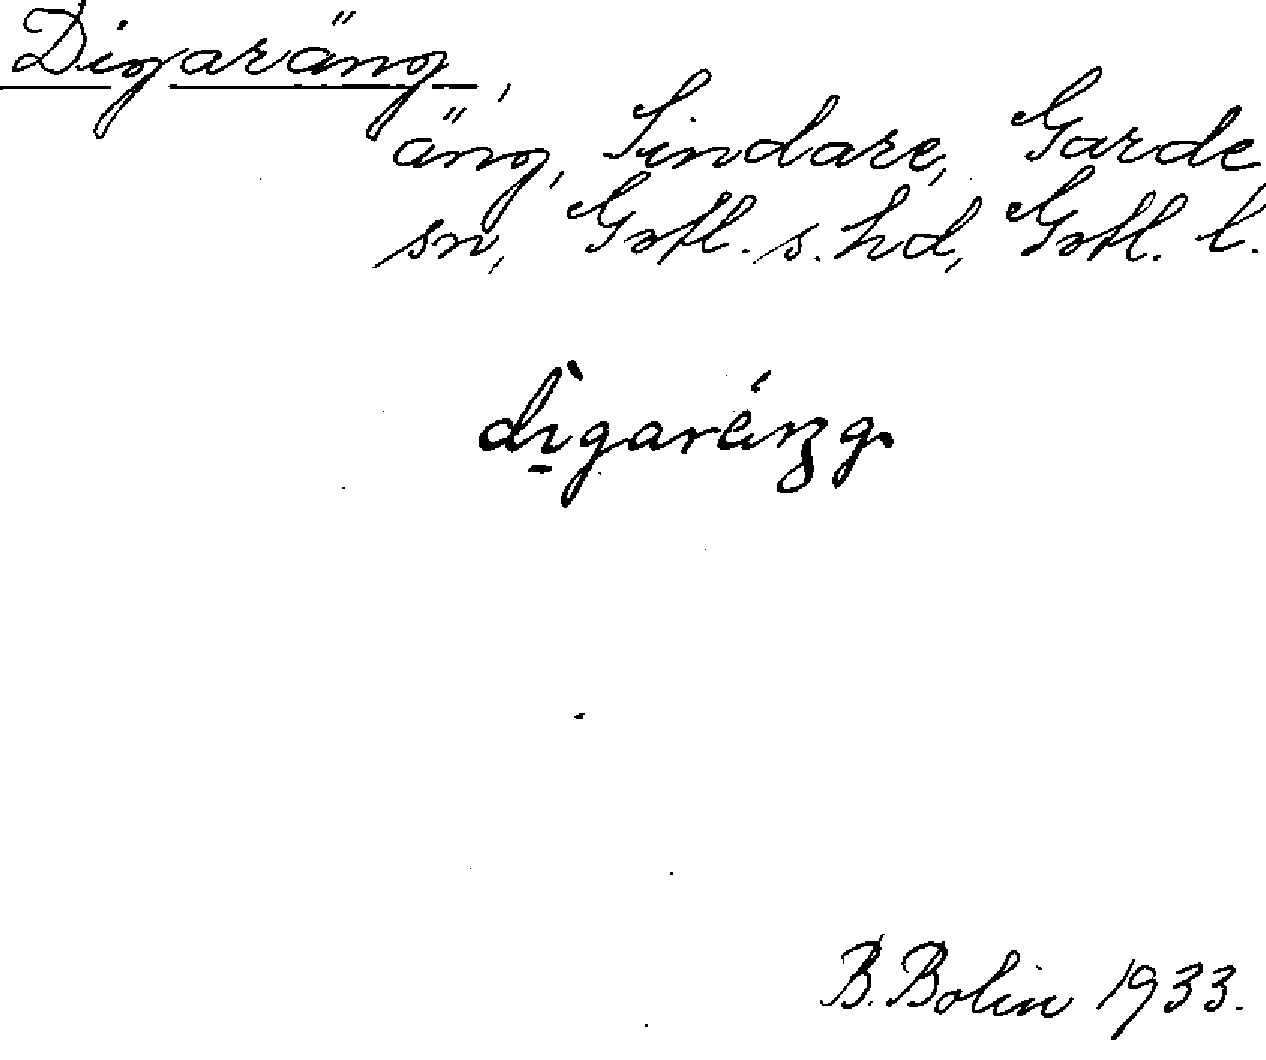 Digaräng,
äng, Sindare, Garde
sn, Gotl. s. hd, Gotl. l.
dìgaräŋg.
B. Bolin 1933.